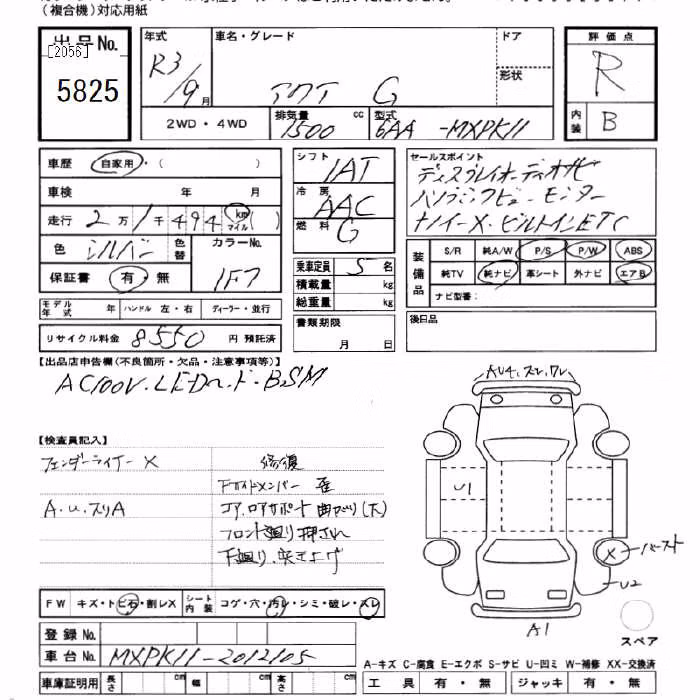 （複合機）対応用紙
出品No.
[2056]
5825
年式
R3/9月
車名・グレード
アクア G
ドア
形状
評価点
R
内装
B
2WD・4WD
排気量
1500 cc
型式
6AA-MXPK11
車歴 自家用・( )
車検 年 月
走行 2万1千494 km マイル ( )
色 シルバー 色替 カラーNo. 1F7
保証書 有・無
モデル年式 年 ハンドル 左・右 ディーラー・並行
リサイクル料金 8550 円 預託済
シフト
IAT
冷房
AAC
燃料
G
乗車定員 5 名
積載量 kg
総重量 kg
書類期限
月 日
セールスポイント
ディスプレイオーディオナビ
パノラミックビューモニター
ナノイーX・ビルトインETC
装備品
S/R 純A/W P/S P/W ABS
純TV 純ナビ 革シート 外ナビ エアB
ナビ型番：
後日品
【出品店申告欄（不良箇所・欠品・注意事項等）】
AC100V.LED
BSM
【検査員記入】
フェンダーライナー X
A.U.スリA
修復
下サイドメンバー 歪
コア.ロアサポート曲がり(大)
フロント廻り押され
下廻り.突き上げ
FW キズ・トビ石・割レX
シート内装 コゲ・穴・汚レ・シミ・破レ・スレ
登録No.
車台No. MXPK11-2012105
車庫証明用 長さ cm 幅 cm 高さ cm
U1
X
バースト
U2
A1
スペア
A-キズ C-腐食 E-エクボ S-サビ U-凹ミ W-補修 XX-交換済
工具 有・無 ジャッキ 有・無